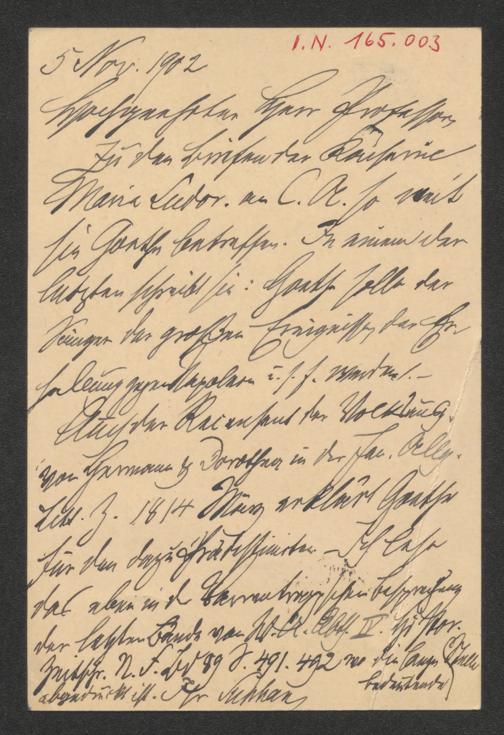 I.N. 165.003
5 Nov. 1902
Hochgeehrter Herr Professor,
Zu den Briefen der Kaiserin
Maria Ludov. an C. A. so weit
sie Goethe betreffen. In einem der
letzten schreibt sie: Goethe solle der
Sänger der großen Ereignisse, der Er-
hebung gegen Napoleon u. s. f. werden. –
Auch der Recensent der
von Hermann & Dorothea in der Jen. Allg.
Litt. Z. 1814 März erklärt Goethe
für den dazu – Ich lese
das eben in der Besprechung
der letzten Bände von W. A. Abth. IV. Histor.
Zeitschr. N. F. Bd 89 S. 491. 492 wo die ganze Stelle
abgedruckt ist. Ihr Suphan
bedeutende